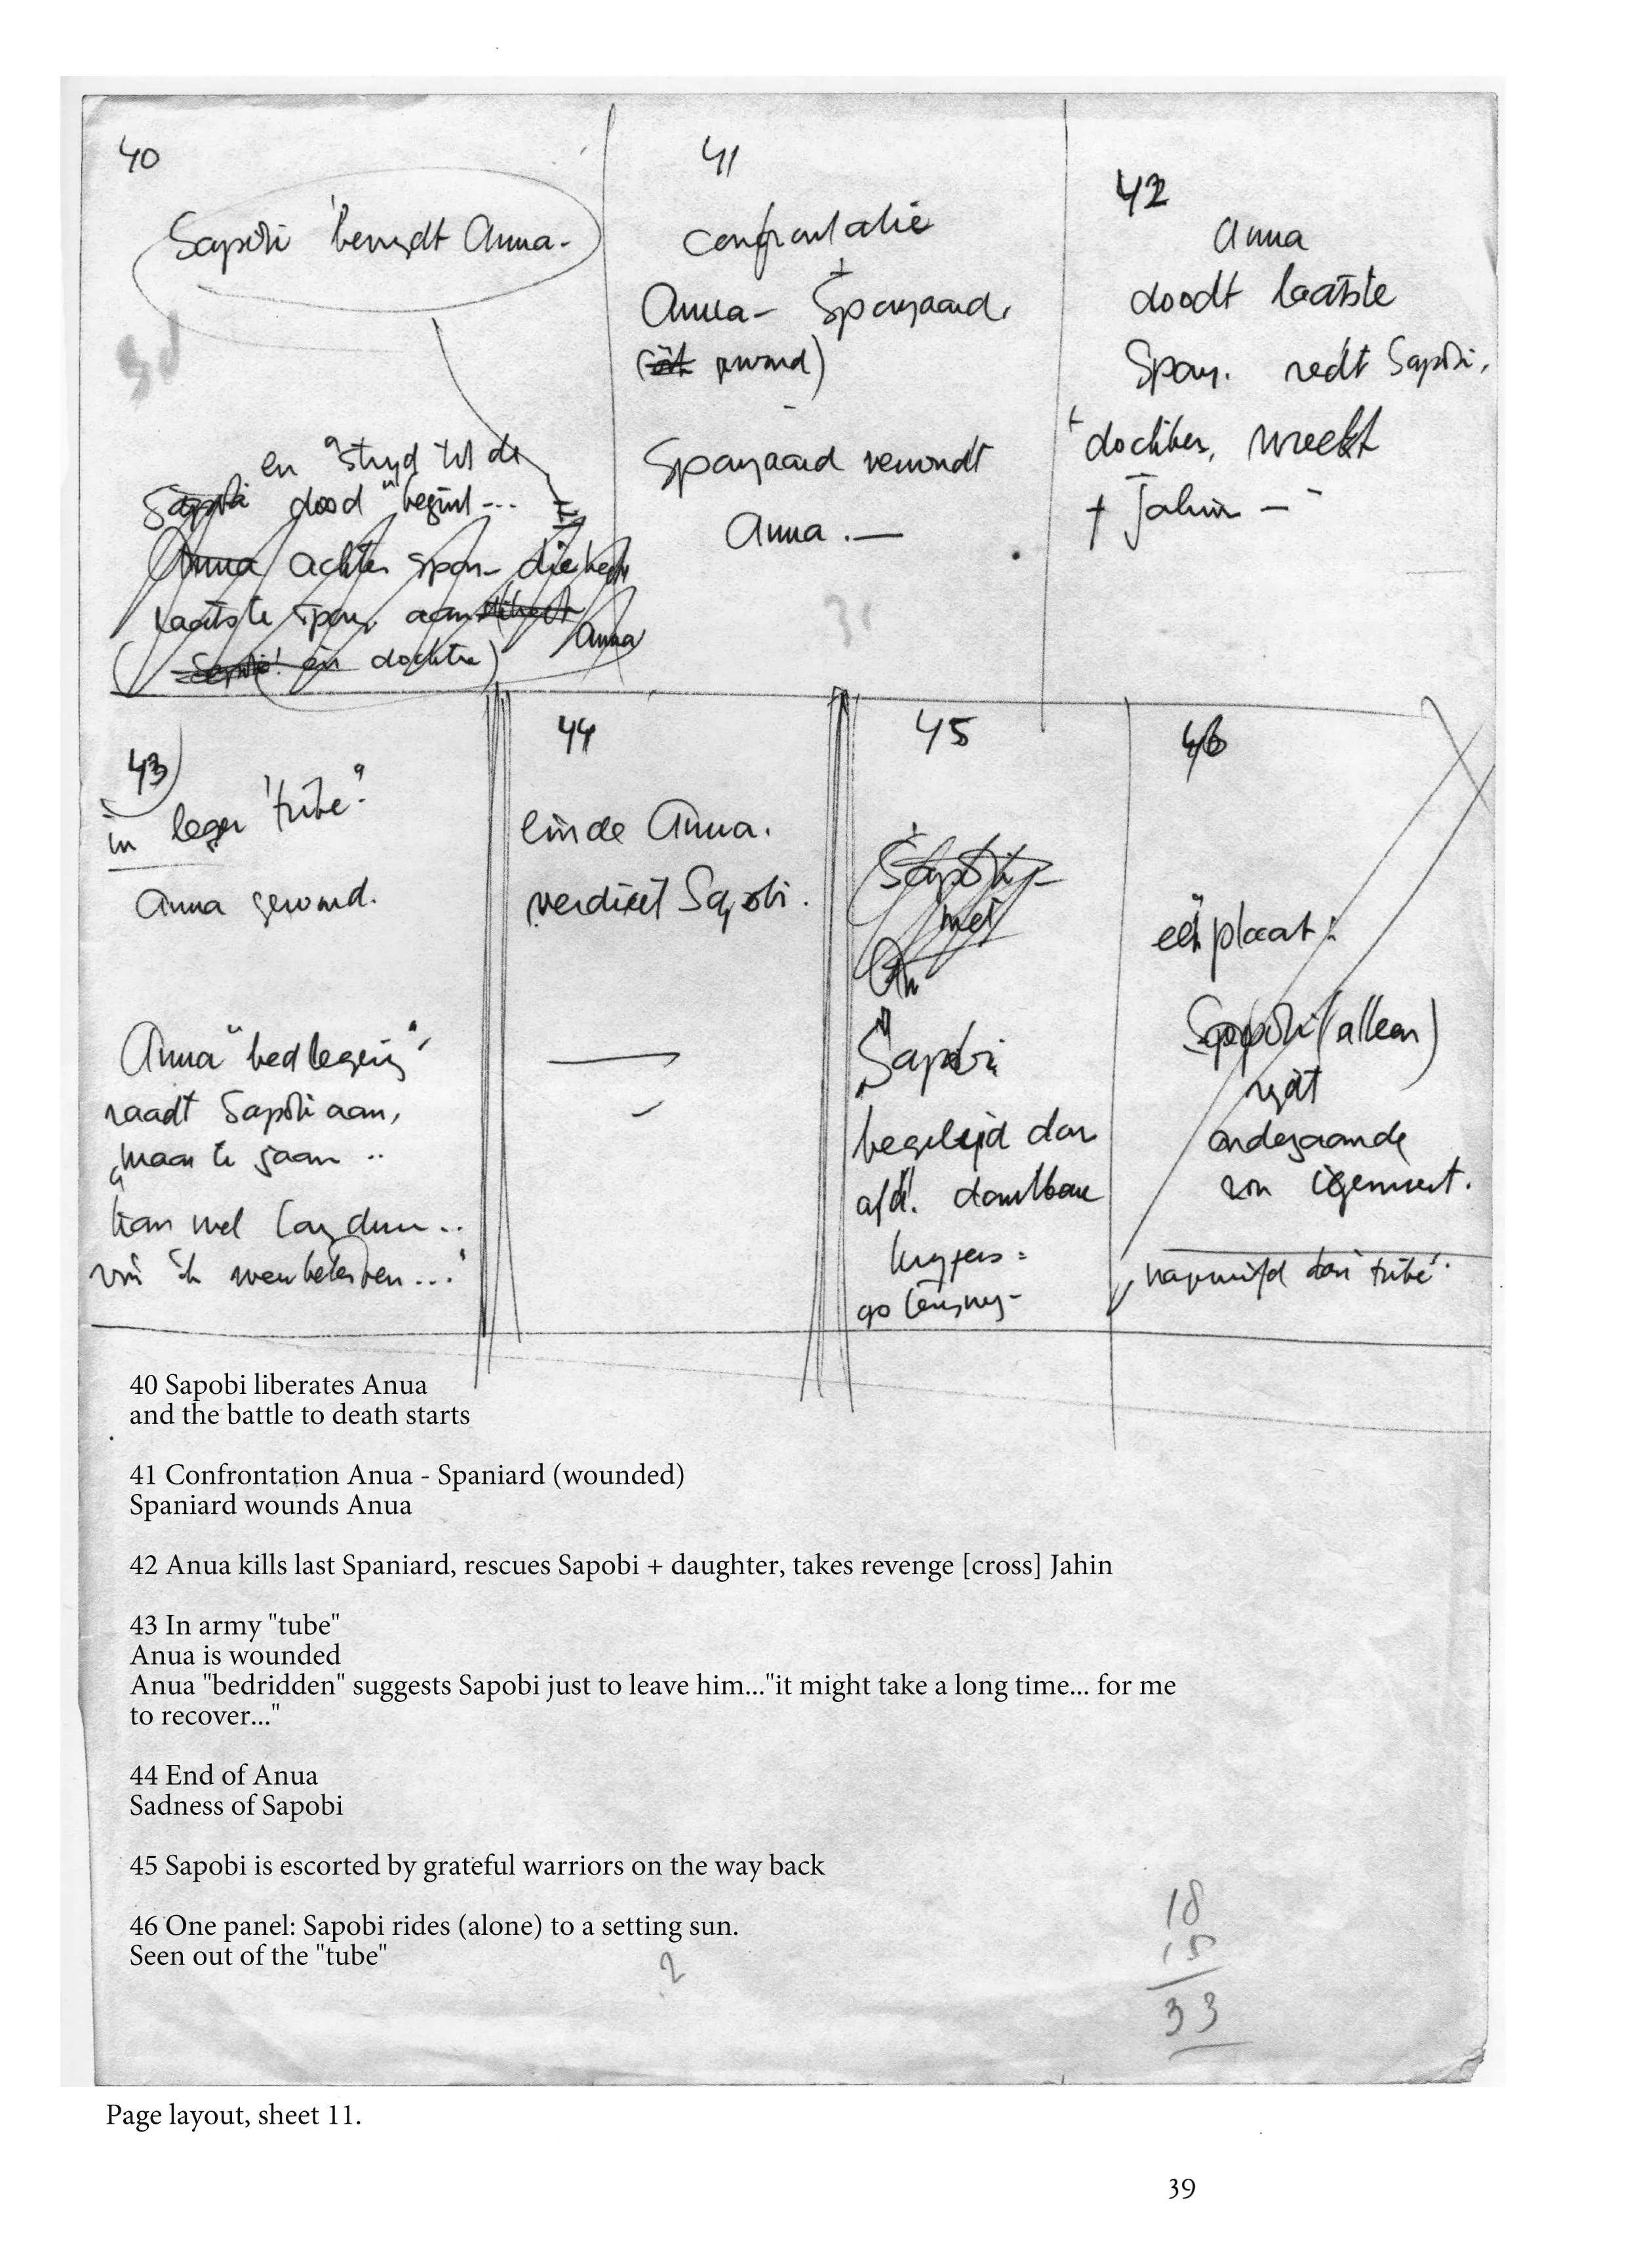 40
Sapobi bevrijdt Anua -
en "strijd tot de
dood" begint ...
Sapobi
Anua achter span - die
laatste span. aan
Anua
en dochter)
41
confrontatie
+
Anua - Spanjaard,
( gewond)
-
Spanjaard verwondt
Anua . —
42
Anua
doodt laatste
Span. redt Sapobi,
+ dochter, wreekt
† Jahin -
43
in leger "tube"
Anua gewond.
Anua "bedlegerig"
raadt Sapobi aan,
maar te gaan ..
kan wel lang duren ..
44
einde Anua.
verdriet Sapobi.
45
Sapobi
met
Sapobi
begeleid door
afd. dankbare
krijgers =
46
één plaat :
Sapobi (alleen)
rijdt
ondergaande
zon tegemoet.
40 Sapobi liberates Anua
and the battle to death starts
41 Confrontation Anua - Spaniard (wounded)
Spaniard wounds Anua
42 Anua kills last Spaniard, rescues Sapobi + daughter, takes revenge [cross] Jahin
43 In army "tube"
Anua is wounded
Anua "bedridden" suggests Sapobi just to leave him..."it might take a long time... for me
to recover..."
44 End of Anua
Sadness of Sapobi
45 Sapobi is escorted by grateful warriors on the way back
46 One panel: Sapobi rides (alone) to a setting sun.
Seen out of the "tube"
?
18
15
33
Page layout, sheet 11.
39